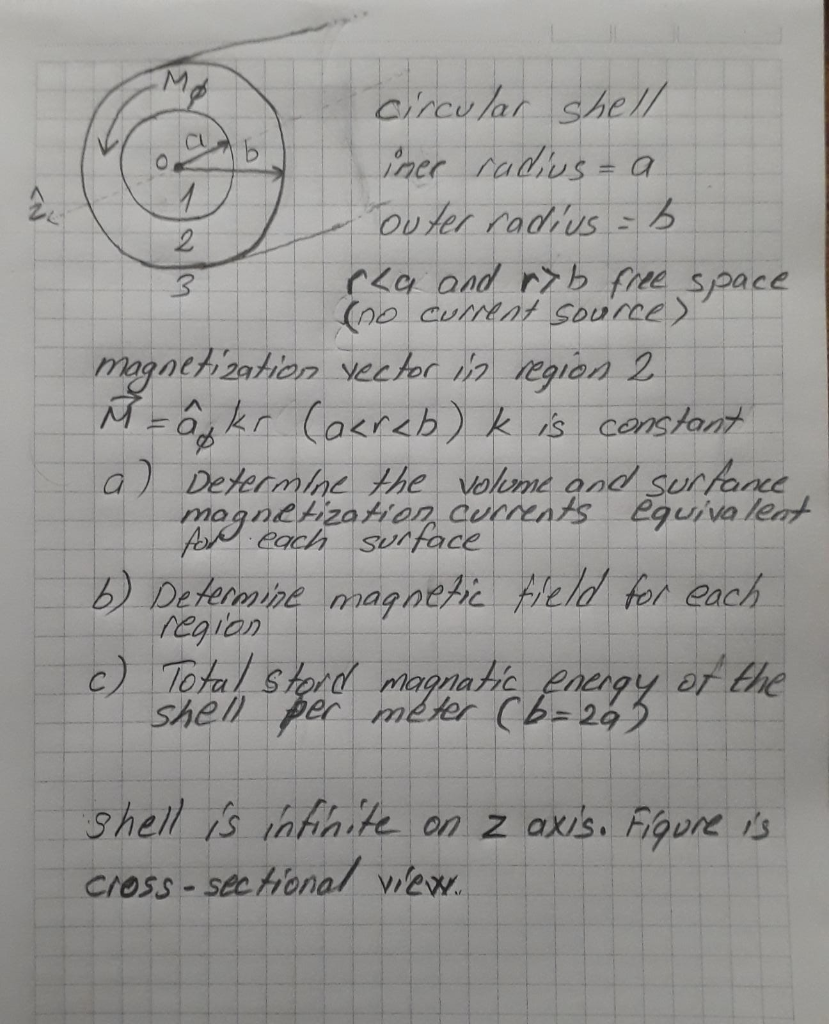 Mϕ
a
b
0
1
ẑ
2
3
circular shell
iner radius = a
outer radius = b
r<a and r>b free space
(no current source)
magnetization vector in region 2
M⃗ = âϕ kr (a<r<b) k is constant
a) Determine the volume and surfance
magnetization currents equivalent
for each surface
b) Determine magnetic field for each
region
c) Total stord magnatic energy of the
shell per meter (b=2a)
shell is infinite on z axis. Figure is
cross-sectional view.